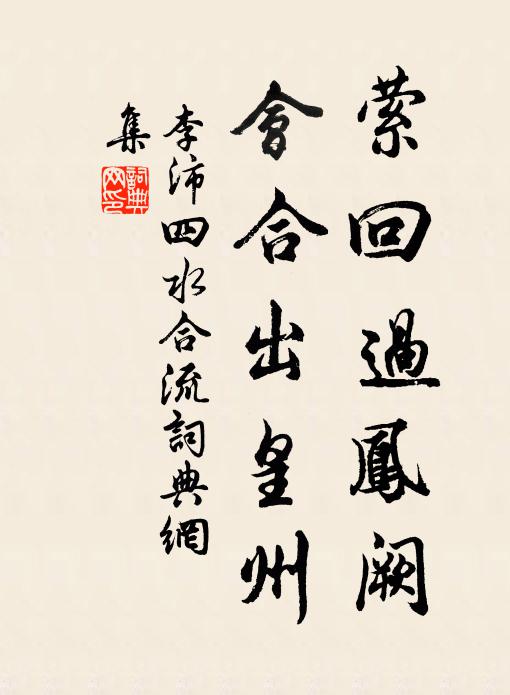 縈回過鳳闕
會合出皇州
李沛四水合流詞典網
集
詞典
网印